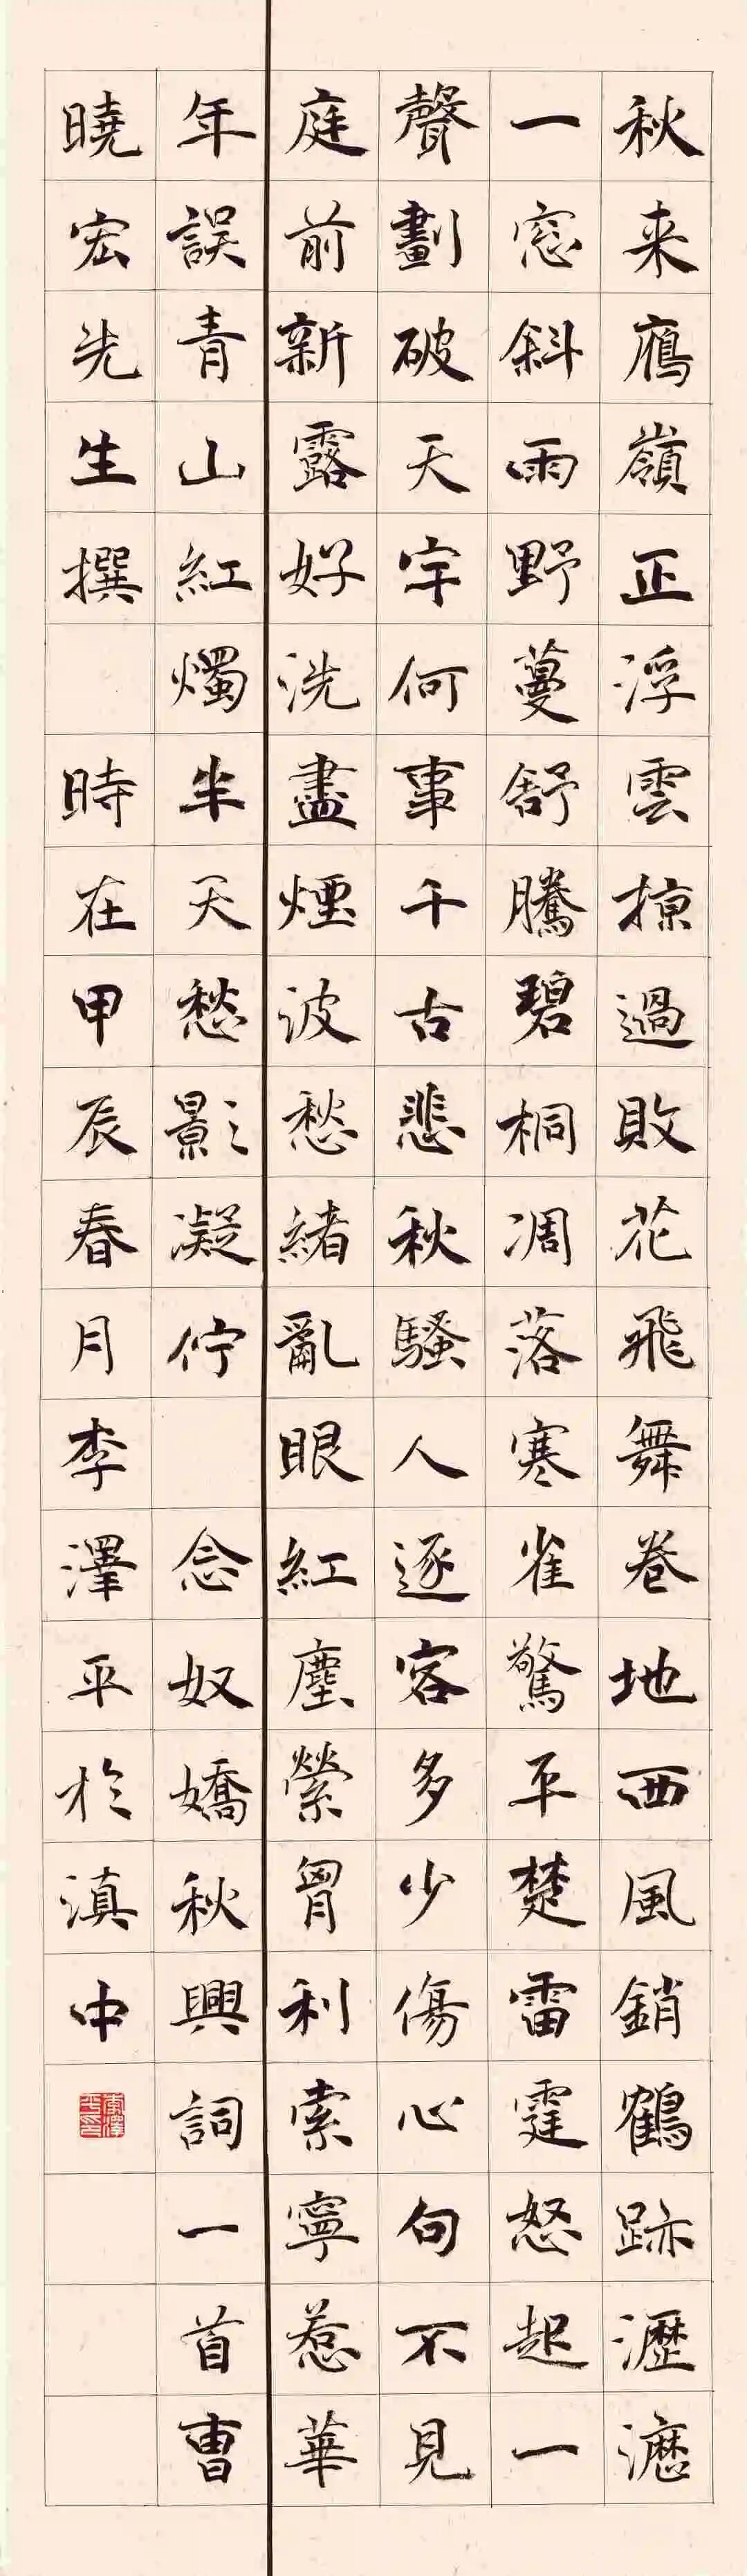 秋来鴈嶺正浮雲掠過敗花飛舞卷地西風銷鶴跡瀝瀝
一窓斜雨野蔓舒騰碧桐凋落寒雀驚平楚雷霆怒起一
聲劃破天宇何事千古悲秋騷人逐客多少傷心句不見
庭前新露好洗盡煙波愁緒亂眼紅塵縈胷利索寧惹華
年誤青山紅燭半天愁影凝佇 念奴嬌秋興詞一首曹
曉宏先生撰 時在甲辰春月李澤平於滇中